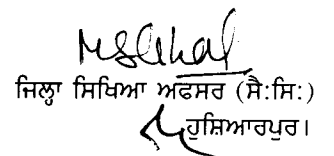 ਜਿਲ੍ਹਾ ਸਿਖਿਆ ਅਫਸਰ (ਸੈ:ਸਿ:)
ਹੁਸ਼ਿਆਰਪੁਰ।